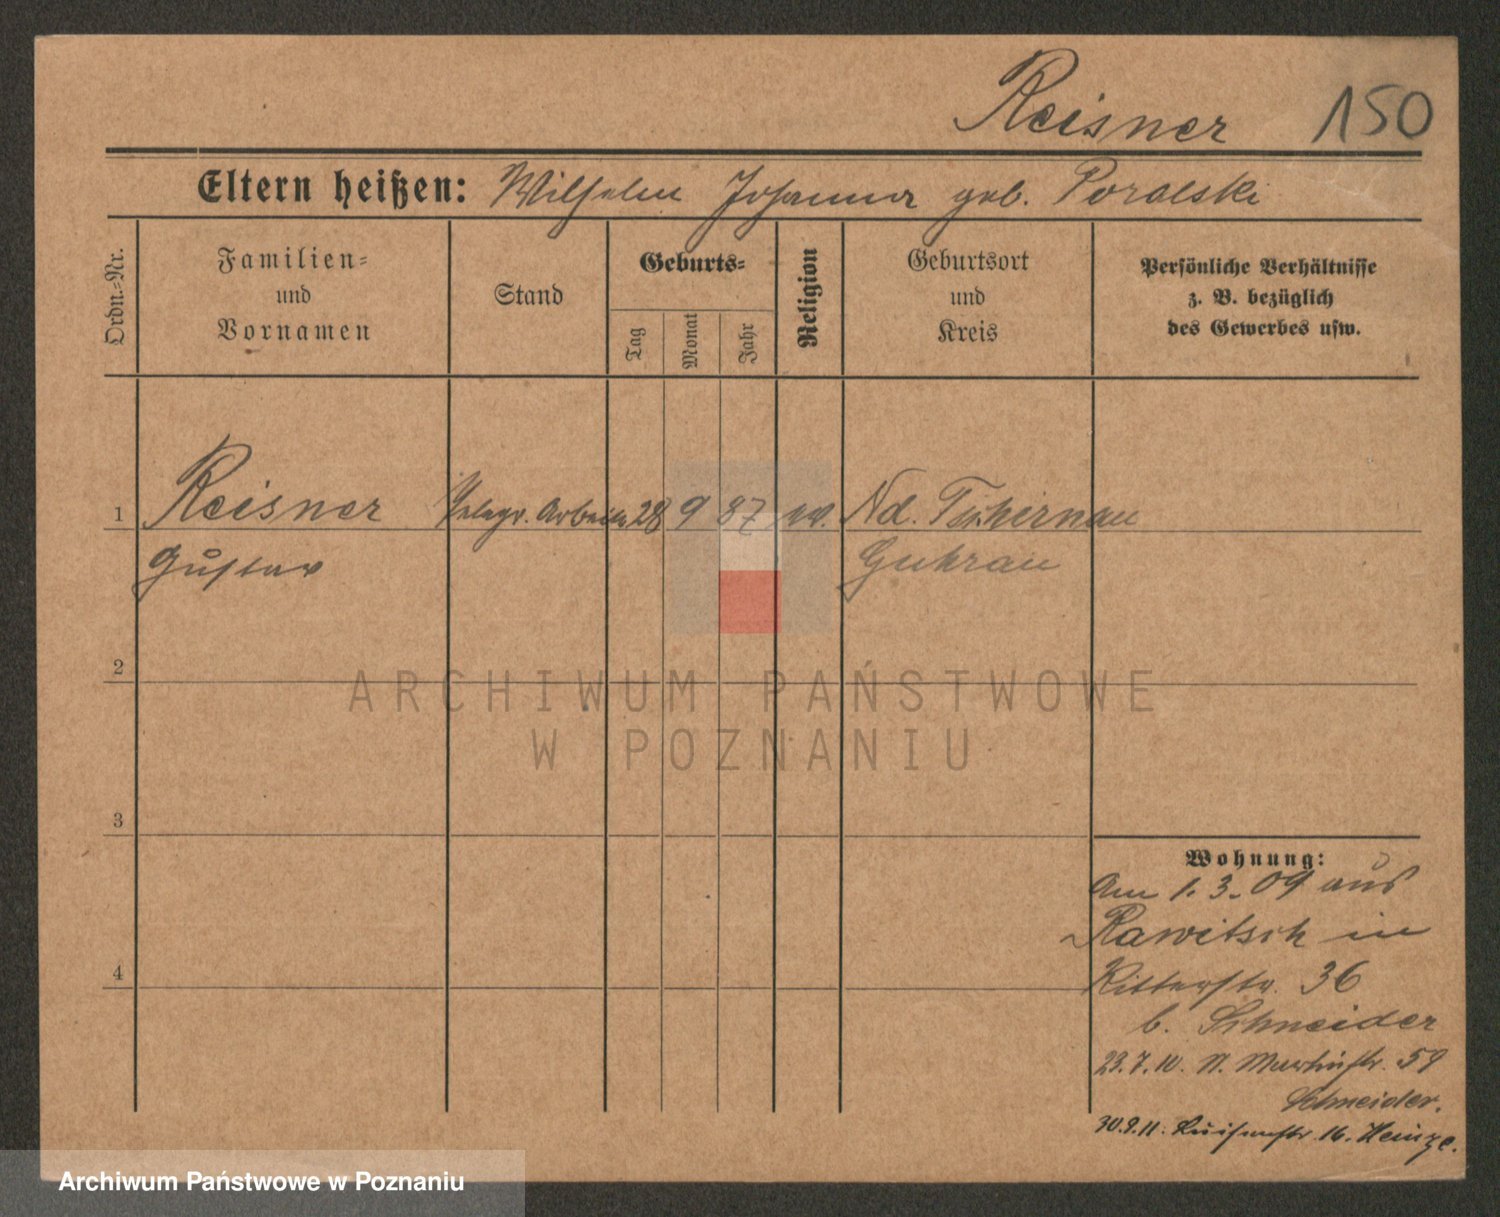 Reisner 150
Eltern heißen: Wilhelm Johanna geb. Poralski
Ordn.-Nr.
Familien-
und
Vornamen
Stand
Geburts-
Tag
Monat
Jahr
Religion
Geburtsort
und
Kreis
Persönliche Verhältnisse
z. B. bezüglich
des Gewerbes usw.
1 Reisner Telegr. Arbeiter 28 9 87 ev. Nd. Tschirnau
Gustav Guhrau
2
ARCHIWUM PAŃSTWOWE
W POZNANIU
3
Wohnung:
Am 1. 3. 09 aus
Rawitsch in
4
Ritterstr. 36
b. Schneider
23.7.10. St. Martinstr. 59
Schneider.
30.9.11. Luisenstr. 16. Heinze.
Archiwum Państwowe w Poznaniu